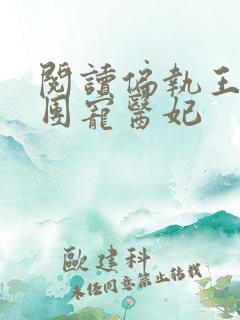 閱讀偏執王
團寵醫妃
歐建科
未經同意禁止轉載